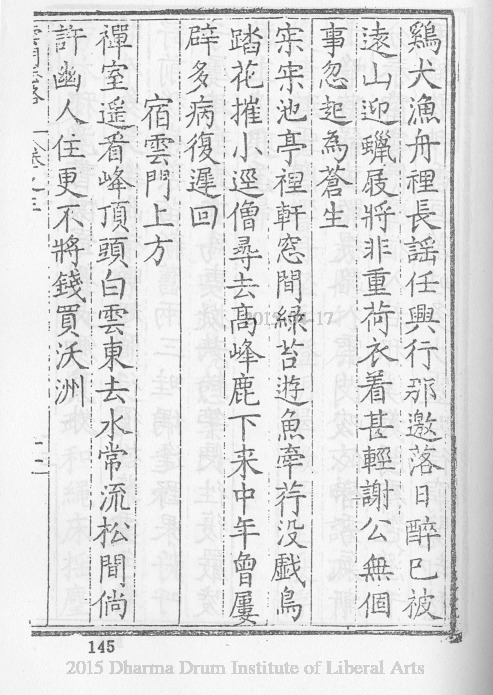 鷄犬漁舟裡長謡任興行那邀落日醉巳被
逺山迎蠟屐將非重荷衣着甚輕謝公無個
事忽起為蒼生
宋宋池亭裡軒窓間綠苔遊魚牽荇没戯鳥
踏花摧小逕僧尋去髙峰鹿下来中年曾屢
辟多病復遲回
宿雲門上方
禪室遥看峰頂頭白雲東去水常流松間倘
許幽人住更不將錢買沃洲
卷之三
十二
145
2015 Dharma Drum Institute of Liberal Arts